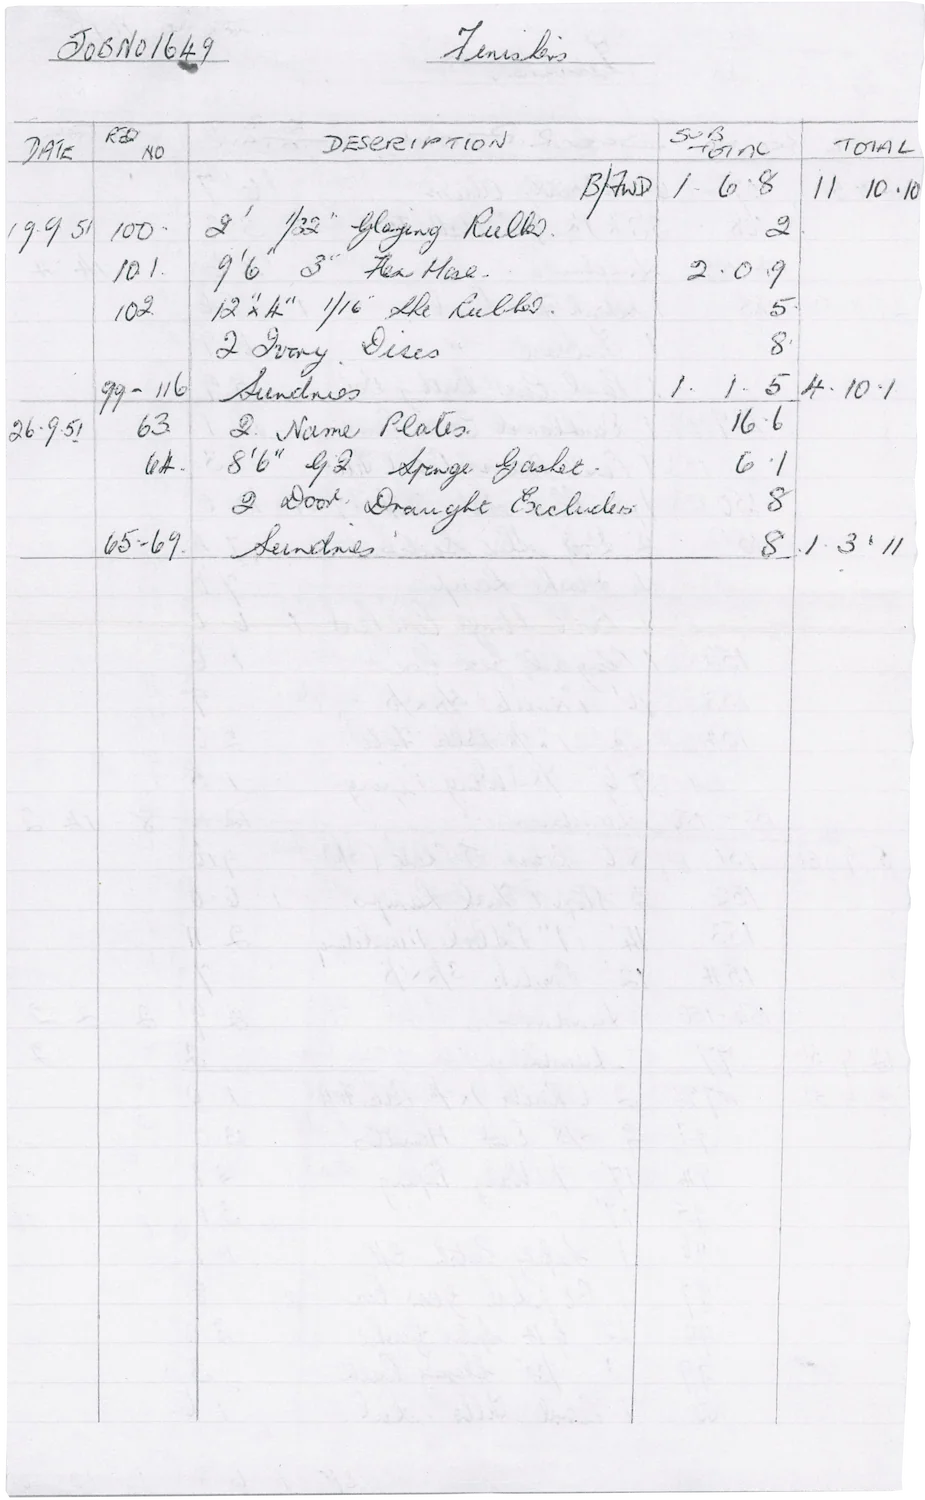 JOB NO 1649 Finishers
DATE REQ NO DESCRIPTION SUB TOTAL TOTAL
B/FWD 1 - 6 - 8 11 10 . 10
19.9.51 100 2' 1/32" Glazing Rubber. 2
101. 9'6" 3" Flex Hose. 2 . 0 . 9
102 12"x4" 1/16" Rubber. 5
2 Ivory Discs 8
99 - 116 Sundries 1 . 1 . 5 4 . 10 . 1
26.9.51 63 2 Name Plates. 16.6
64. 8'6" G2 Sponge Gasket. 6.1
2 Door Draught Excluders 8
65-69. Sundries 8 1 . 3 . 11